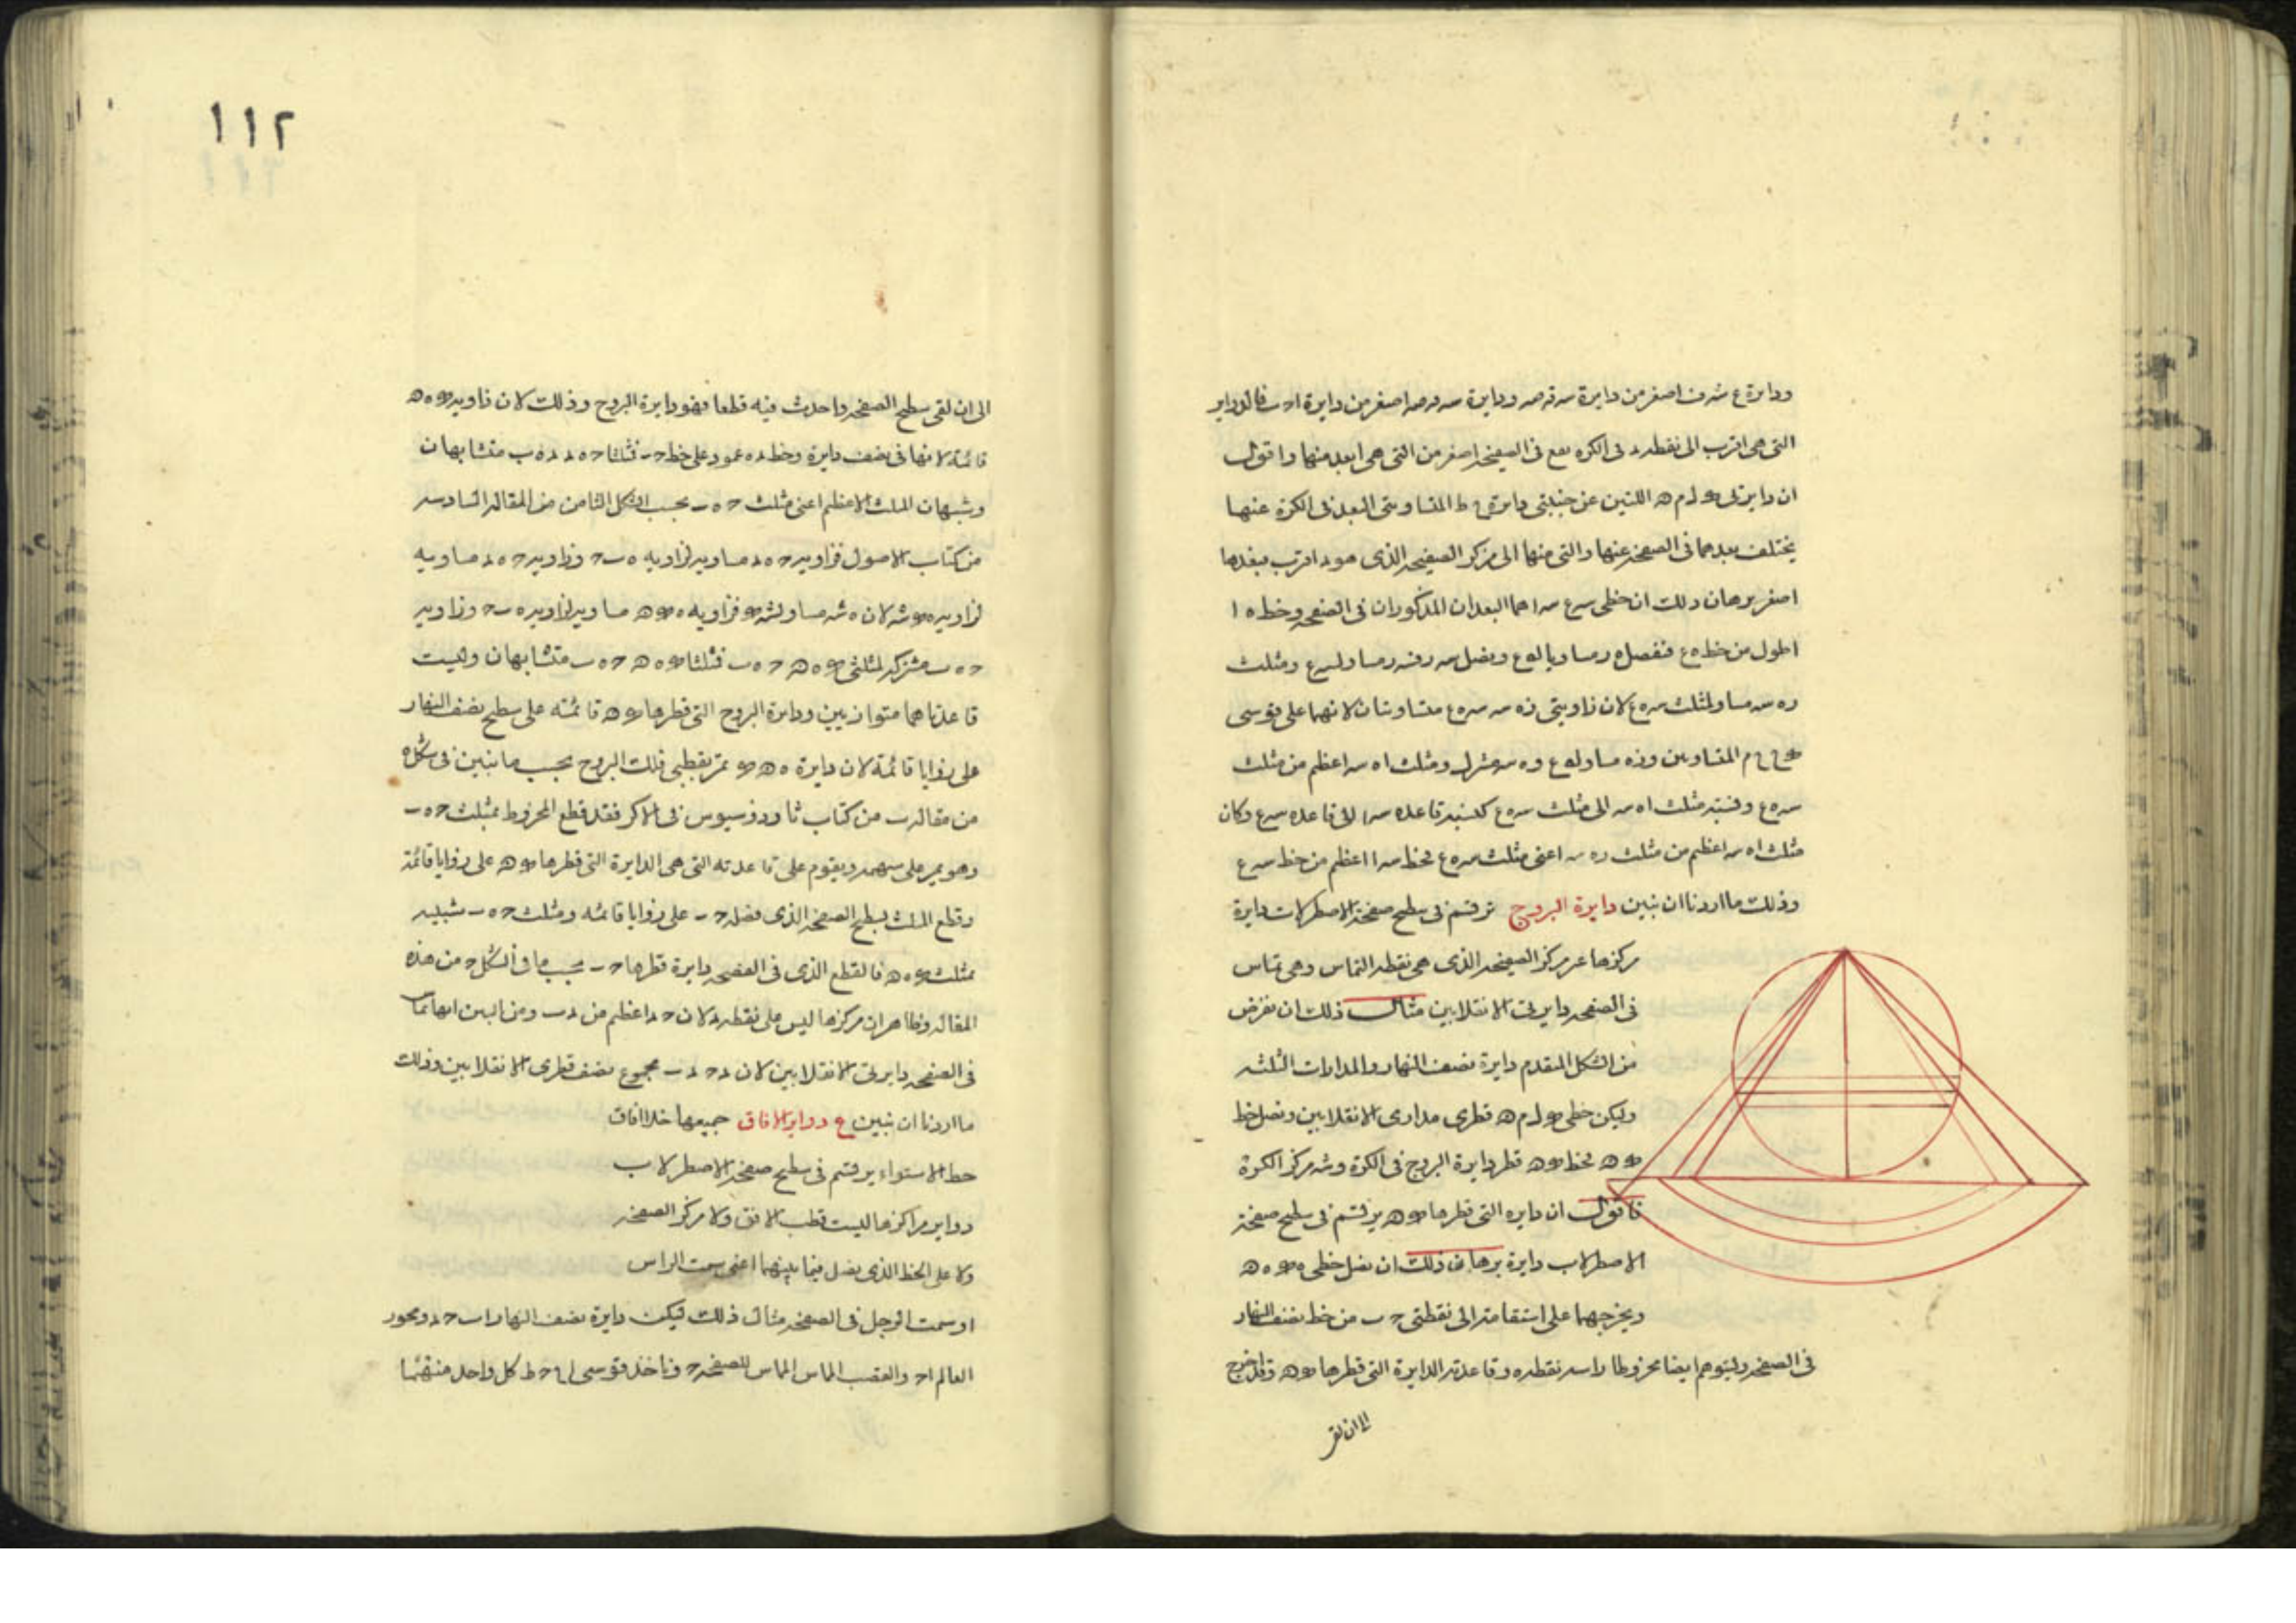 ودايرة ع شه ف اصغر من دايرة سه قه صه ودايرة سه قه صه اصغر من دايرة فالدواير
التى هى اقرب الى نقطه د فى الكره يقع فى الصفيحه اصغر من التى هى ابعد منها واقول
ان دايرتى ل م ه اللتين عن جنبتى دايرة ط المتساويتى البعد فى الكرة عنها
يختلف بعدهما فى الصفحه عنها والتى منهما الى مركز الصفيحه الذى هو د اقرب فبعدها
اصغر برهان ذلك ان خطى سه ع سه ا هما البعدان المذكوران فى الصفحه وخط ه ا
اطول من خط ه ع فنفصل ه ر مساويا له ع ونصل سه ر فسه ر مساو لسه ع ومثلث
ره سه مساو لمثلث سه ه ع لان زاويتى ره سه سه ه ع متساويتان لانهما على قوسى
م المتساويين وره مساو له ع وه سه مشترك ومثلث اه سه اعظم من مثلث
سه ه ع ونسبة مثلث اه سه الى مثلث سه ه ع كنسبة قاعدة سه ا الى قاعدة سه ع وكان
مثلث اه سه اعظم من مثلث ره سه اعنى مثلث سه ه ع فخط سه ا اعظم من خط سه ع
وذلك ما اردنا ان نبين دايرة البروج ترتسم فى سطح صفحة الاصطرلاب دايرة
مركزها غير مركز الصفيحه الذى هى نقطه التماس وهى تماس
فى الصفحه دايرتى الانقلابين مثال ذلك ان نفرض
من الشكل المتقدم دايرة نصف النهار والمدارات الثلثه
وليكن خطى ل م ه قطرى مدارى الانقلابين ونصل خط
ه فخط ه قطر دايرة البروج فى الكرة وشه مركز الكرة
فاقول ان دايره التى قطرها ه يرتسم فى سطح صفحة
الاصطرلاب دايرة برهان ذلك ان نصل خطى ه ه ه
ويخرجهما على استقامته الى نقطتى ح ب من خط نصف النهار
فى الصفحه وليتوهم ايضا مخروطا راسه نقطه ه وقاعدته الدايرة التى قطرها ه وقد اخرج
الى ان لقى
١١٢
الى ان لقى سطح الصفحه واحدث فيه قطعا فهو دايرة البروج وذلك لان زاويه ه ه
قائمة لانها فى نصف دايرة وخط د ه عمود على خط ح ب فمثلثا ح ه د د ه ب متشابهان
وشبيهان المثلث الاعظم اعنى مثلث ح ه ب بحسب الشكل الثامن من المقاله السادسه
من كتاب الاصول فزاويه ح ه د مساويه لزاويه ه ب ح وزاويه ح ه د مساويه
لزاويه ه شه لان ه شه مساو لشه فزاويه ه ه مساويه لزاويه ه ب ح وزاويه
ح ه ب مشتركه لمثلثى ه ه ح ه ب فمثلثا ه ه ح ه ب متشابهان وليست
قاعدتاهما متوازيين ودايرة البروج التى قطرها ه قائمة على سطح نصف النهار
على زوايا قائمة لان دايرة ه ه تمر بقطبى فلك البروج بحسب ما تبين فى شكل ه
من مقاله ب من كتاب ثاوذوسيوس فى الاكر فقد قطع المخروط بمثلث ح ه ب
وهو يمر على سهمه ويقوم على قاعدته التى هى الدايرة التى قطرها ه على زوايا قائمة
وقطع المثلث بسطح الصفحه الذى فضله ح ب على زوايا قائمه ومثلث ح ه ب شبيه
بمثلث ه ه فالقطع الذى فى الصفحه دايرة قطرها ح ب بحسب ما فى الشكل ح من هذه
المقاله وظاهر ان مركزها ليس على نقطه د لان ح د اعظم من د ب ومن البين انها تماس
فى الصفحه دايرتى الانقلابين لان د ح د ب مجموع نصف قطرى الانقلابين وذلك
ما اردنا ان نبين ع دواير الافاق جميعها خلا افاق
خط الاستواء يرتسم فى سطح صفحة الاصطرلاب
دواير مراكزها ليست قطب الافق ولا مركز الصفحه
ولا على الخط الذى يصل فيما بينهما اعنى سمت الراس
او سمت الرجل فى الصفحه مثال ذلك ليكن دايرة نصف النهار اب ح د ومحور
العالم ا ح والقطب المماس للصفحه ح وناخذ قوسى ح ط كل واحد منهما